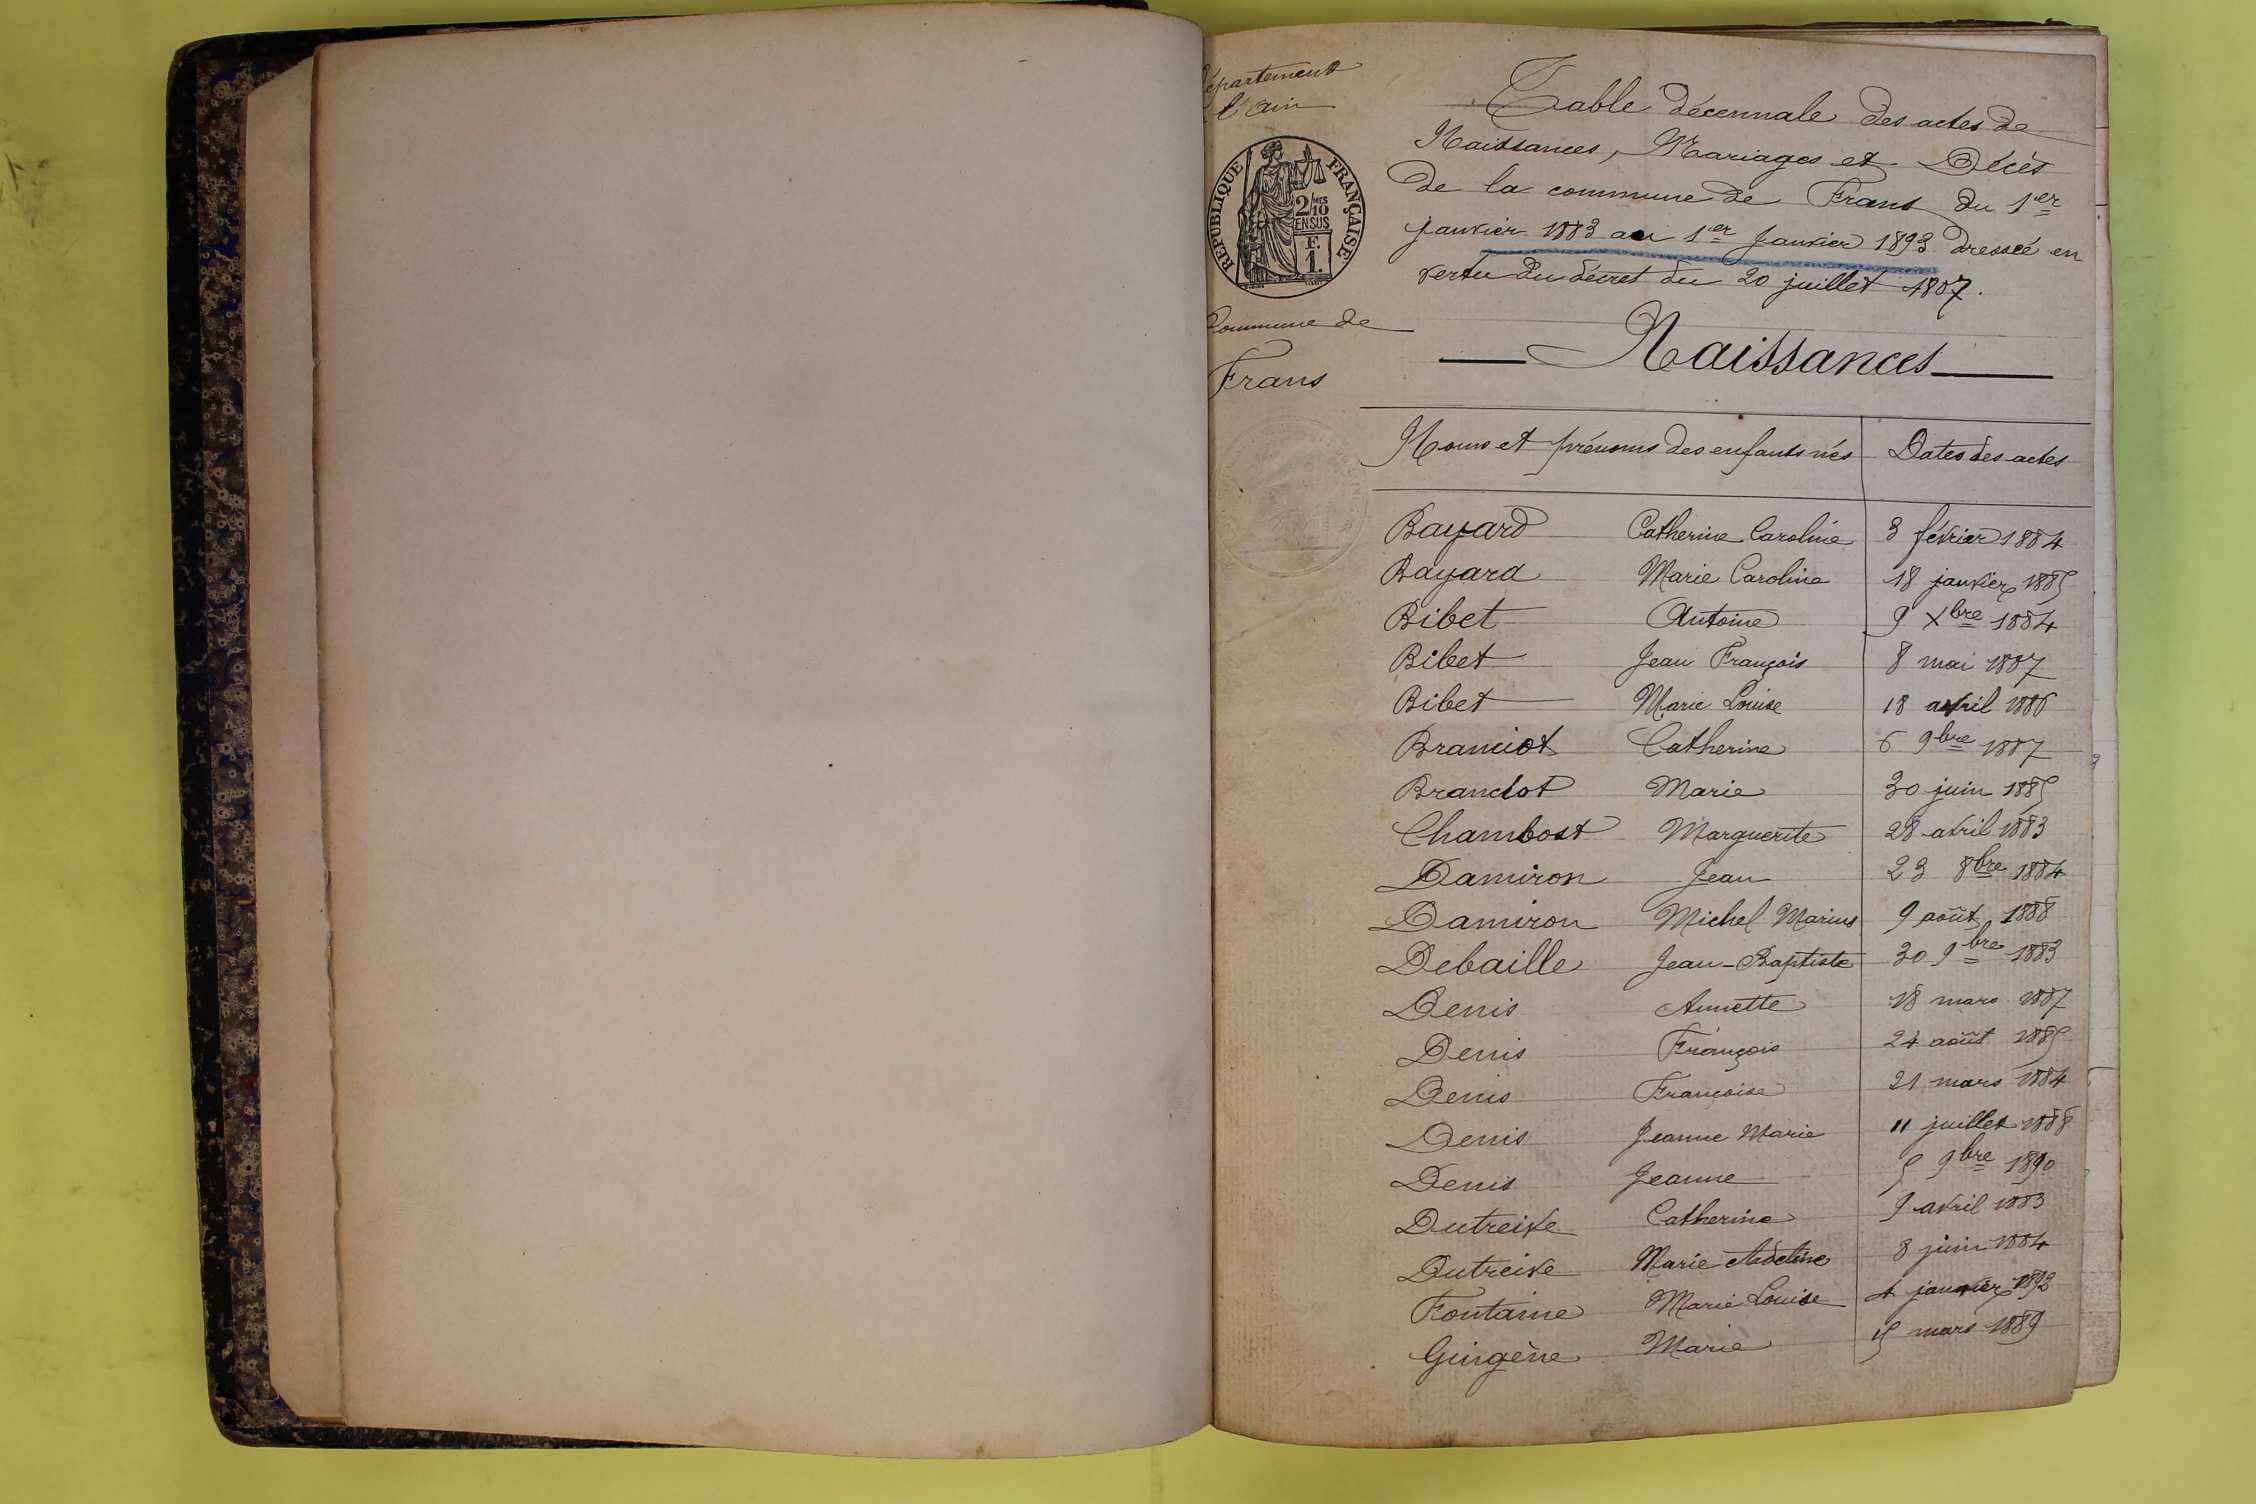 Département
l'Ain
RÉPUBLIQUE FRANÇAISE
2/10 MES
EN SUS
F.
1.
Commune de
Frans
Table décennale des actes de
Naissances, Mariages et Décès
de la commune de Frans du 1er
janvier 1883 au 1er Janvier 1893 dressée en
vertu du décret du 20 juillet 1807.
Naissances
Noms et prénoms des enfants nés Dates des actes
Bayard Catherine Caroline 3 février 1884
Bayard Marie Caroline 18 janvier 1885
Bibet Antoine 9 Xbre 1884
Bibet Jean François 8 mai 1887
Bibet Marie Louise 18 avril 1886
Branciot Catherine 6 9bre 1887
Branciot Marie 30 juin 1885
Chambost Marguerite 28 avril 1883
Damiron Jean 23 8bre 1884
Damiron Michel Marius 9 août 1888
Debaille Jean-Baptiste 30 9bre 1883
Denis Annette 18 mars 1887
Denis François 24 août 1885
Denis Françoise 21 mars 1884
Denis Jeanne Marie 11 juillet 1888
Denis Jeanne 5 9bre 1890
Dutreive Catherine 9 avril 1883
Dutreive Marie Adeline 8 juin 1884
Fontaine Marie Louise 4 janvier 1892
Guigène Marie 15 mars 1889